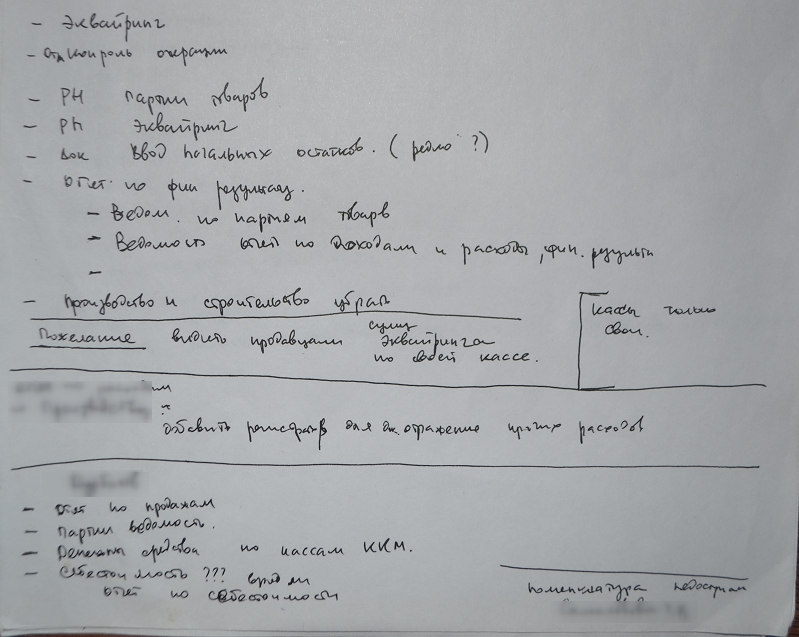 - Эквайринг
- Контроль операции
- РН Партии товаров
- РН Эквайринг
- Док Ввод начальных остатков. ( ?)
- Отчет по фин результату.
- Ведом. по партиям товаров
- Ведомость отчет по доходам и расходы, фин. результ
-
- Производство и строительство убрать
Кассы только
свои.
Пожелание видеть продавцами сумму Эквайринга
по своей кассе.
Добавить регистратор для отражение прочих расходов
- Отчет по продажам
- Партии ведомость.
- Денежные средства по кассам ККМ.
- Себестоимость ???
отчет по себестоимости
Номенклатура недоступн